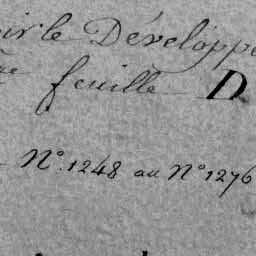 voir le Développe
feuille D
N° 1248 au N° 1276